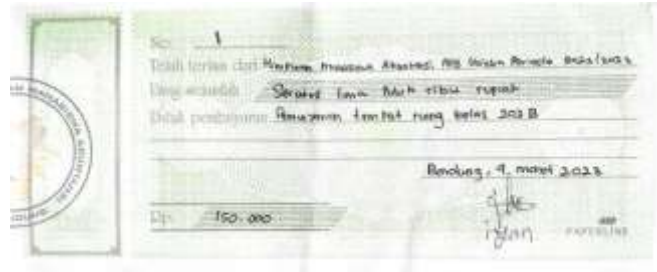 No. 1
Telah terima dari Himpunan Mahasiswa Akuntansi Periode 2022/2023
Uang sejumlah Seratus lima Puluh ribu rupiah
Untuk pembayaran Peminjaman tempat ruang kelas 203 B
Bandung, 9 maret 2023
Rp. 150.000
PAPERLINE